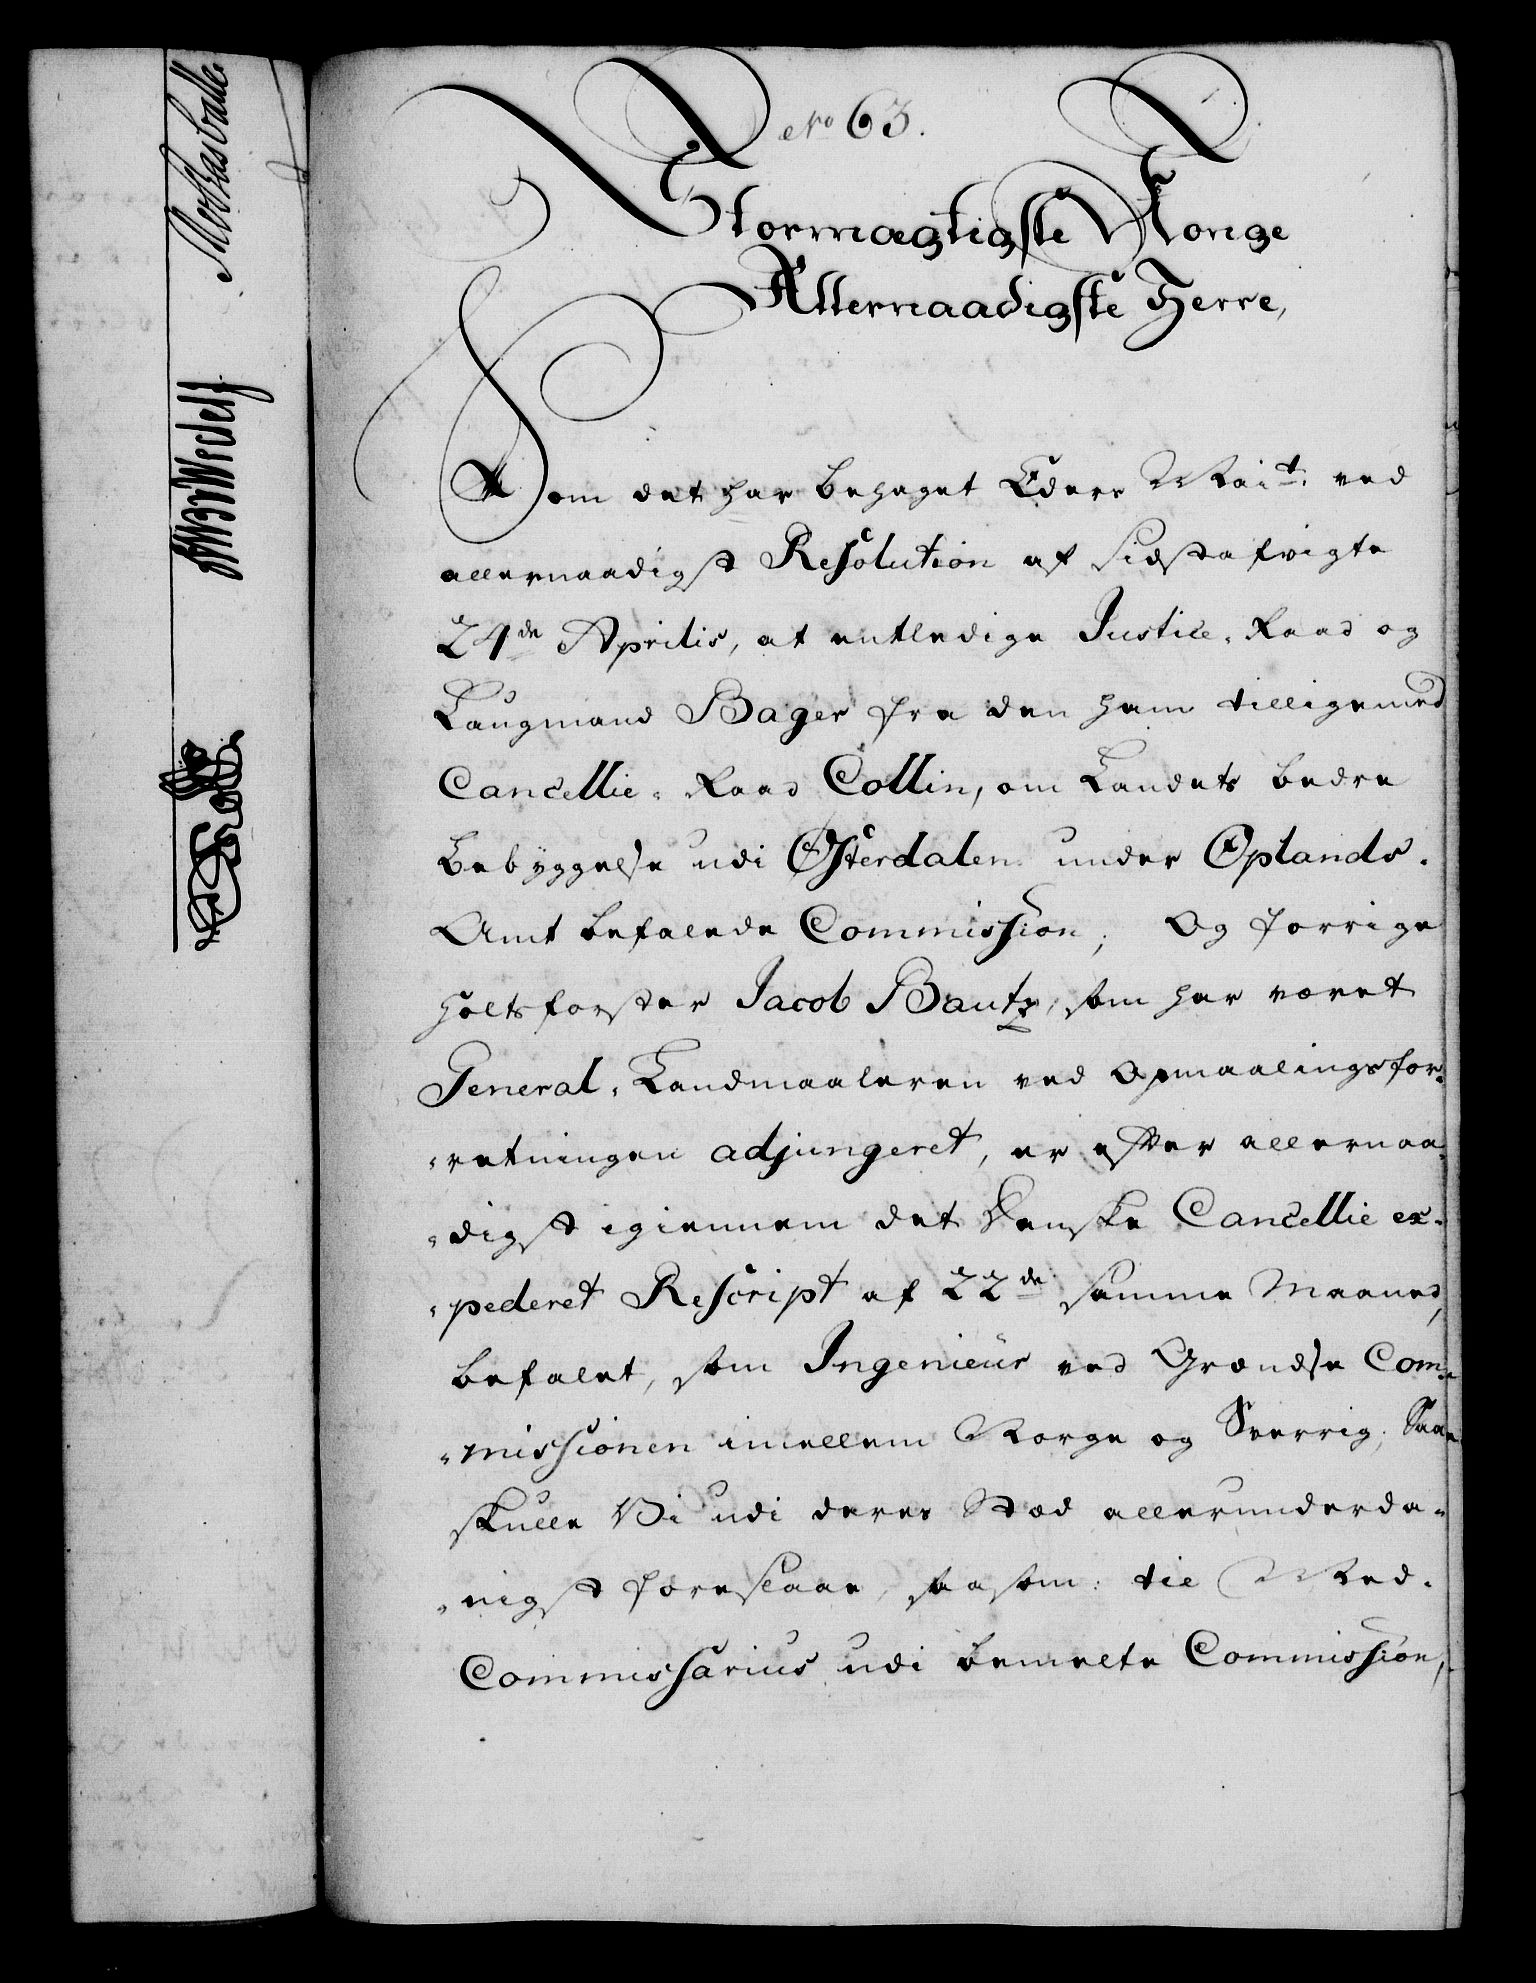 No 63.
Stormægtigste Konge
Allernaadigste Herre,
Som det har behaget Eders Mait. ved
allernaadigst Resolution af sidstafvigte
24de Aprilis, at entledige Justice-Raad og
Laugmand Bager fra den ham tilligemed
Cancellie-Raad Collin, om Landets bedre
Bebÿggelse udi Østerdalen under Oplands-
Amt befalede Commission; Og forrige
Holtsforster Jacob Bautz, som har været
General-Landmaaleren ved Opmaalingsfor-
-retningen adjungeret, er efter allernaa-
-digst igiennem det Danske Cancellie ex-
-pederet Rescript af 22de samme Maaned,
befalet, som Ingenieur ved Grændse Com-
-missionen imellem Norge og Sverrig; Saa
skulle Vi udi deres Stæd allerunderda-
-nigst foreslaae, saasom: til Med-
Commissarius udi bemelte Commission,